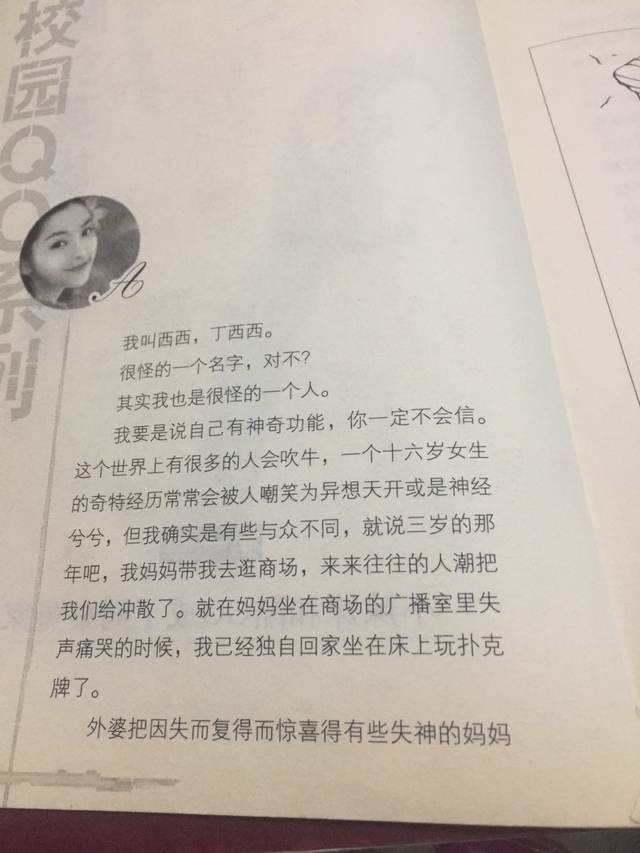 校园QQ系列
A
我叫西西，丁西西。
很怪的一个名字，对不？
其实我也是很怪的一个人。
我要是说自己有神奇功能，你一定不会信。
这个世界上有很多的人会吹牛，一个十六岁女生
的奇特经历常常会被人嘲笑为异想天开或是神经
兮兮，但我确实是有些与众不同，就说三岁的那
年吧，我妈妈带我去逛商场，来来往往的人潮把
我们给冲散了。就在妈妈坐在商场的广播室里失
声痛哭的时候，我已经独自回家坐在床上玩扑克
牌了。
外婆把因失而复得而惊喜得有些失神的妈妈